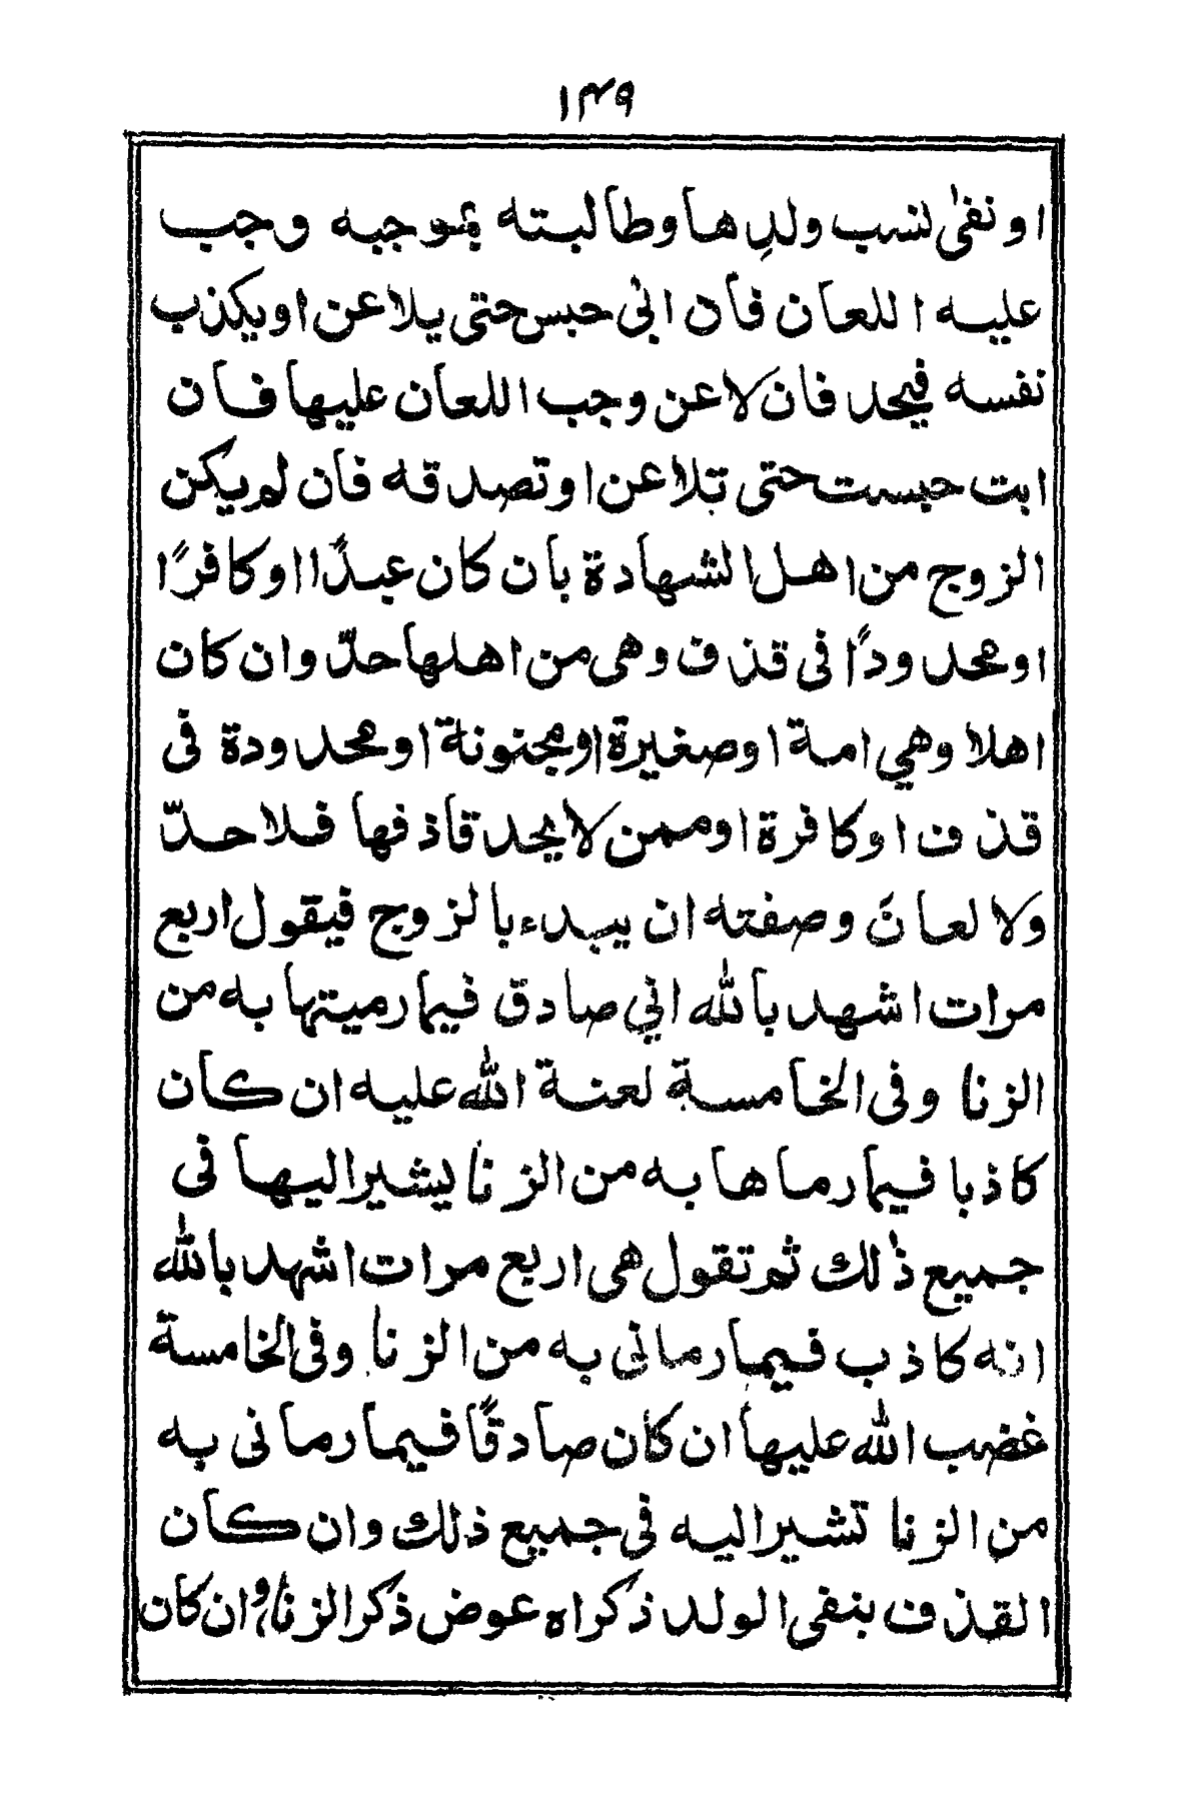 ١٣٩
او نفى نسب ولدِها وطالبته بموجبه وجب
عليه اللعان فان ابى حبس حتى يلاعن او يكذب
نفسه فيحد فان لاعن وجب اللعان عليها فان
ابت حبست حتى تلاعن او تصدقه فان لم يكن
الزوج من اهل الشهادة بان كان عبدًا او كافرًا
او محدودًا فى قذف وهى من اهلها حدّ وان كان
اهلا وهي امة او صغيرة او مجنونة او محدودة فى
قذف او كافرة او ممن لا يحد قاذفها فلا حدّ
ولا لعان وصفته ان يبدء بالزوج فيقول اربع
مرات اشهد بالله اني صادق فيما رميتها به من
الزنا وفى الخامسة لعنة الله عليه ان كان
كاذبا فيما رماها به من الزنا يشير اليها فى
جميع ذلك ثم تقول هى اربع مرات اشهد بالله
انه كاذب فيما رمانى به من الزنا وفى الخامسة
غضب الله عليها ان كان صادقًا فيما رمانى به
من الزنا تشير اليه فى جميع ذلك وان كان
القذف بنفى الولد ذكراه عوض ذكر الزنا وان كان